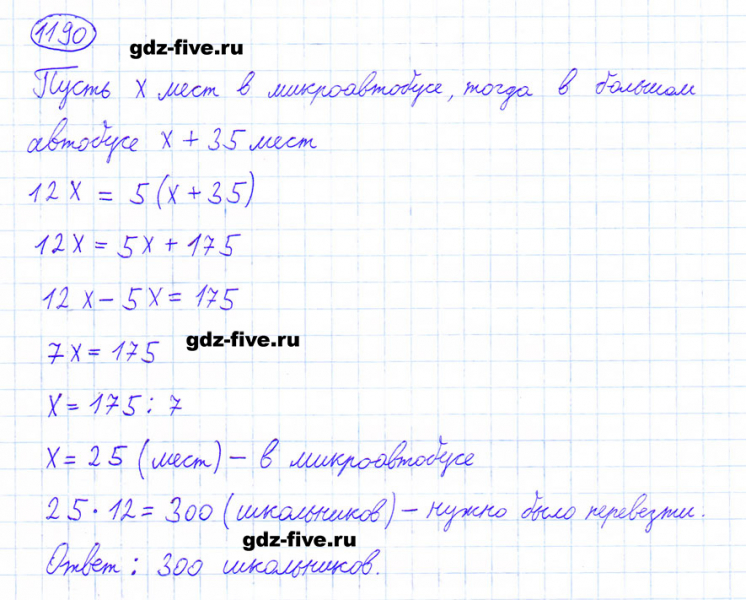 1190
gdz-five.ru
Пусть x мест в микроавтобусе, тогда в большом
автобусе x + 35 мест
12x = 5(x + 35)
12x = 5x + 175
12x - 5x = 175
gdz-five.ru
7x = 175
x = 175 : 7
x = 25 (мест) - в микроавтобусе
25 · 12 = 300 (школьников) - нужно было перевезти.
gdz-five.ru
Ответ : 300 школьников.